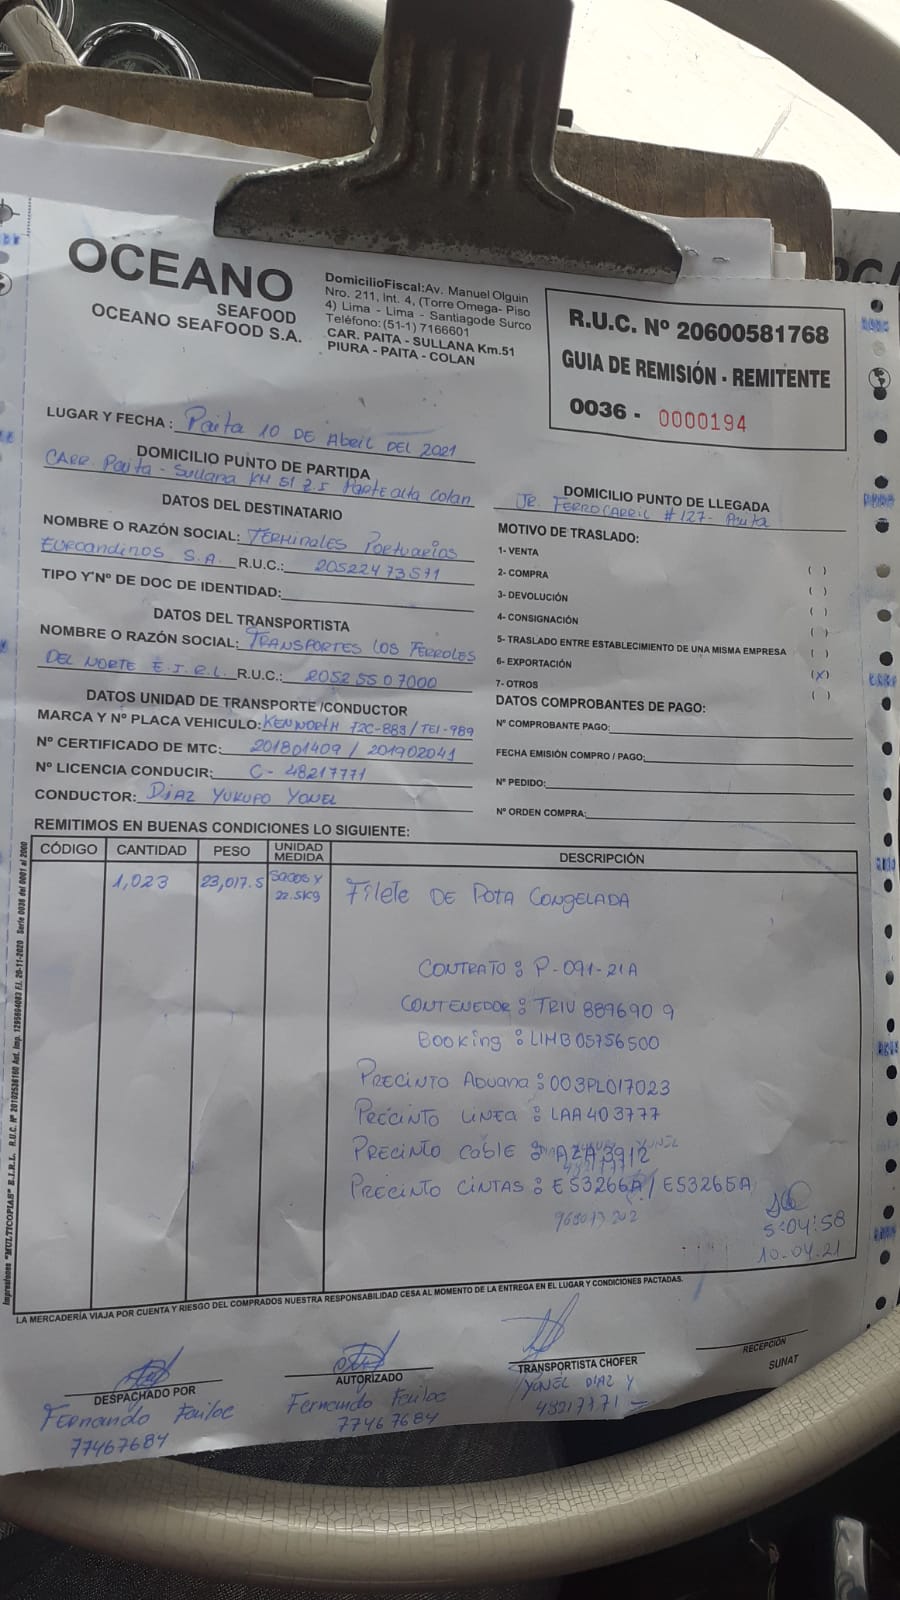 OCEANO
SEAFOOD
OCEANO SEAFOOD S.A.
DomicilioFiscal:Av. Manuel Olguin
Nro. 211, Int. 4, (Torre Omega- Piso
4) Lima - Lima - Santiagode Surco
Teléfono:(51-1) 7166601
CAR. PAITA - SULLANA Km.51
PIURA - PAITA - COLAN
R.U.C. Nº 20600581768
GUIA DE REMISIÓN - REMITENTE
0036 - 0000194
LUGAR Y FECHA : Paita 10 DE Abril DEL 2021
DOMICILIO PUNTO DE PARTIDA
CARR. Paita - Sullana KM 51 Z.I Parte alta Colan
DOMICILIO PUNTO DE LLEGADA
JR. FERROCARRIL #127- Paita
DATOS DEL DESTINATARIO
NOMBRE O RAZÓN SOCIAL: TERMINALES PORTUARIOS
EUROANDINOS S.A. R.U.C.: 20522473571
TIPO Y Nº DE DOC DE IDENTIDAD:
DATOS DEL TRANSPORTISTA
NOMBRE O RAZÓN SOCIAL: TRANSPORTES LOS FERROLES
DEL NORTE E.I.R.L. R.U.C.: 20525507000
DATOS UNIDAD DE TRANSPORTE /CONDUCTOR
MARCA Y Nº PLACA VEHICULO: KENWORTH T2C-889/TEI-989
Nº CERTIFICADO DE MTC: 201801409 / 201902041
Nº LICENCIA CONDUCIR: C- 48217771
CONDUCTOR: DIAZ YUKUPO YONEL
MOTIVO DE TRASLADO:
1- VENTA ( )
2- COMPRA ( )
3- DEVOLUCIÓN ( )
4- CONSIGNACIÓN ( )
5- TRASLADO ENTRE ESTABLECIMIENTO DE UNA MISMA EMPRESA ( )
6- EXPORTACIÓN (X)
7- OTROS ( )
DATOS COMPROBANTES DE PAGO:
Nº COMPROBANTE PAGO:
FECHA EMISIÓN COMPRO / PAGO:
Nº PEDIDO:
Nº ORDEN COMPRA:
REMITIMOS EN BUENAS CONDICIONES LO SIGUIENTE:
CÓDIGO CANTIDAD PESO UNIDAD MEDIDA DESCRIPCIÓN
1,023 23,017.5 Sacos x 22.5Kg Filete DE POTA CONGELADA
CONTRATO : P-091-21A
CONTENEDOR : TRIU 889690 9
Booking : LIMB05756500
PRECINTO ADUANA : 003PL017023
PRECINTO LINEA : LAA403777
PRECINTO CABLE : AZA3912
PRECINTO CINTAS : E53266A/E53265A
5:04:58
10-04-21
Impresiones "MULTICOPIAS" B.I.R.L. R.U.C. Nº 20102536160 Aut. Imp. 1295694083 F.I. 20-11-2020 Serie 0036 del 0001 al 2000
LA MERCADERÍA VIAJA POR CUENTA Y RIESGO DEL COMPRADOS NUESTRA RESPONSABILIDAD CESA AL MOMENTO DE LA ENTREGA EN EL LUGAR Y CONDICIONES PACTADAS.
DESPACHADO POR
Fernando
77467684
AUTORIZADO
Fernando
77467684
TRANSPORTISTA CHOFER
YONEL DIAZ Y
48217771
RECEPCIÓN
SUNAT